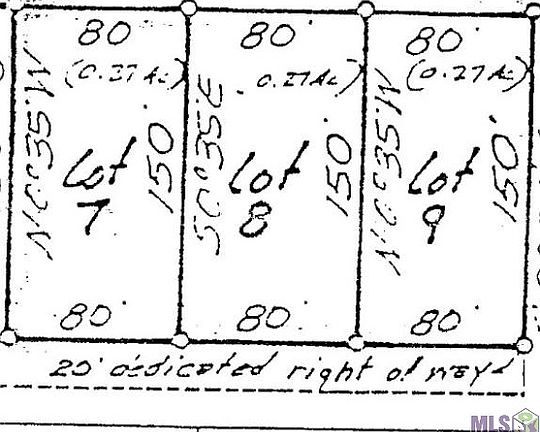 80' 80' 80'
(0.27 Ac) 0.27 Ac) (0.27 Ac)
N0°35'W 150 S0°35'E 150 N0°35'W 150'
Lot Lot Lot
7 8 9
80' 80' 80'
20' dedicated right of way
MLS